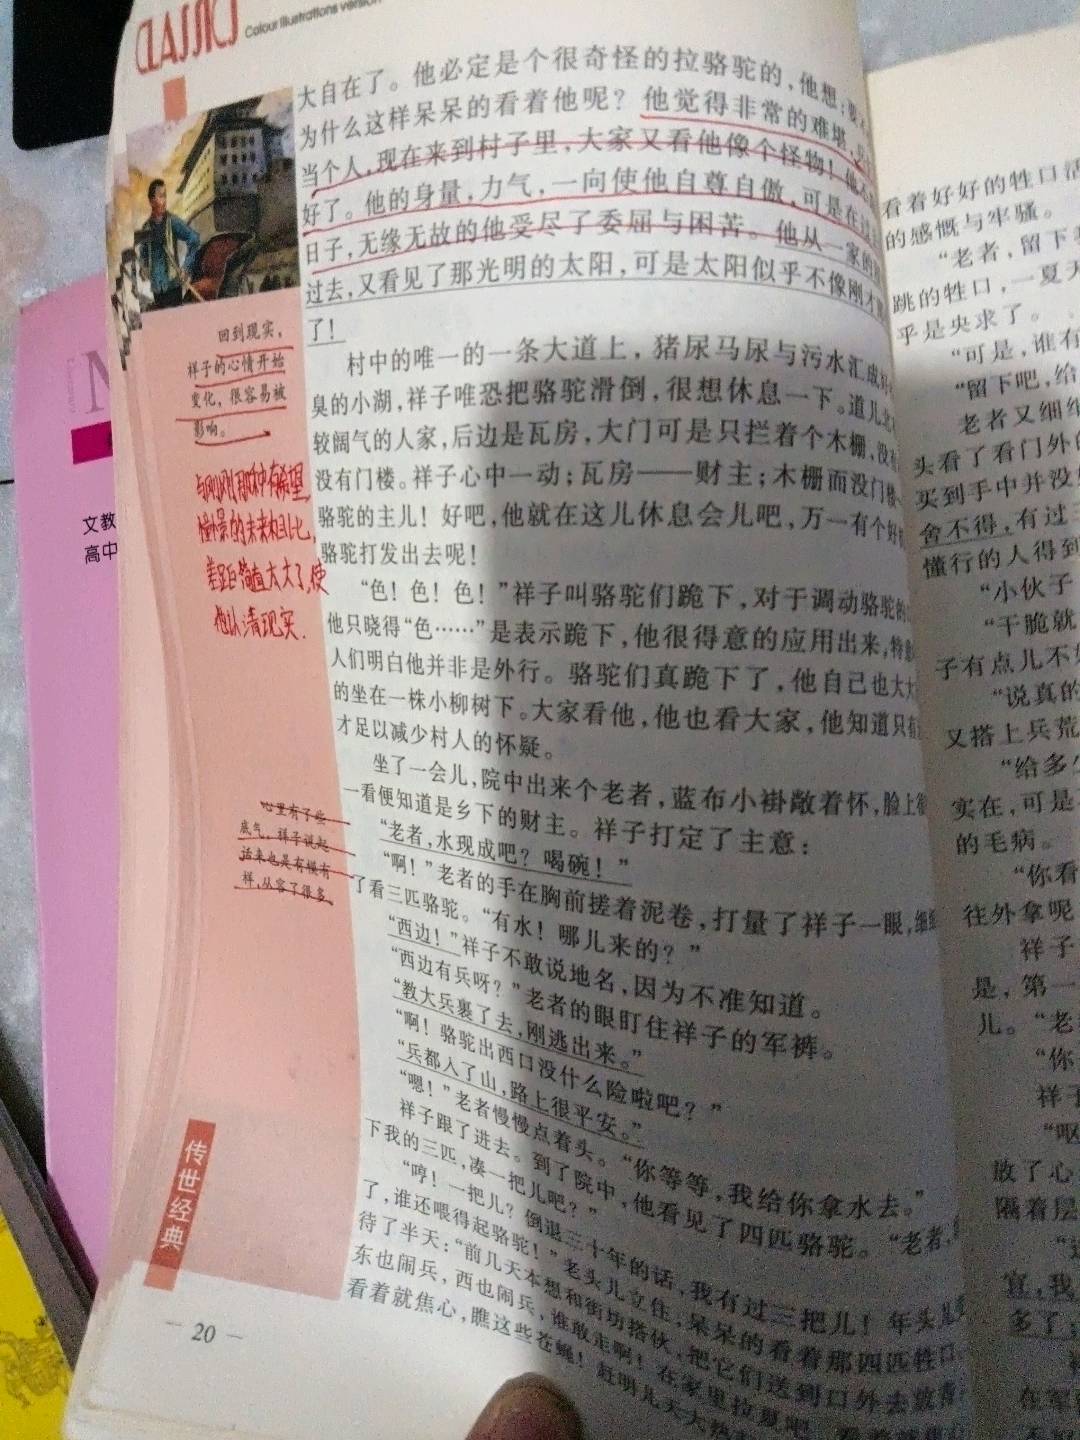 CLASSICS
Colour illustrations version
大自在了。他必定是个很奇怪的拉骆驼的，他想；要
为什么这样呆呆的看着他呢？他觉得非常的难堪，兵
当个人，现在来到村子里，大家又看他像个怪物！他
好了。他的身量，力气，一向使他自尊自傲，可是在过
日子，无缘无故的他受尽了委屈与困苦。他从一家的
过去，又看见了那光明的太阳，可是太阳似乎不像刚才
了！
村中的唯一的一条大道上，猪尿马尿与污水汇成
臭的小湖，祥子唯恐把骆驼滑倒，很想休息一下。道儿北
较阔气的人家，后边是瓦房，大门可是只拦着个木栅，没有
没有门楼。祥子心中一动；瓦房——财主；木栅而没门楼
骆驼的主儿！好吧，他就在这儿休息会儿吧，万一有个好
骆驼打发出去呢！
“色！色！色！”祥子叫骆驼们跪下，对于调动骆驼的
他只晓得“色……”是表示跪下，他很得意的应用出来，特意
人们明白他并非是外行。骆驼们真跪下了，他自己也大大
的坐在一株小柳树下。大家看他，他也看大家，他知道只有
才足以减少村人的怀疑。
坐了一会儿，院中出来个老者，蓝布小褂敞着怀，脸上很
一看便知道是乡下的财主。祥子打定了主意：
“老者，水现成吧？喝碗！”
“啊！”老者的手在胸前搓着泥卷，打量了祥子一眼，细细
了看三匹骆驼。“有水！哪儿来的？”
“西边！”祥子不敢说地名，因为不准知道。
“西边有兵呀？”老者的眼盯住祥子的军裤。
“教大兵裹了去，刚逃出来。”
“啊！骆驼出西口没什么险啦吧？”
“兵都入了山，路上很平安。”
“嗯！”老者慢慢点着头。“你等等，我给你拿水去。”
祥子跟了进去。到了院中，他看见了四匹骆驼。“老者，
下我的三匹，凑一把儿吧？”
“哼！一把儿？倒退三十年的话，我有过三把儿！年头儿
了，谁还喂得起骆驼！”老头儿立住，呆呆的看着那四匹牲口
待了半天：“前几天本想和街坊搭伙，把它们送到口外去放青
东也闹兵，西也闹兵，谁敢走啊！在家里拉夏吧，看着就焦心
看着就焦心，瞧这些苍蝇！赶明儿天大热
回到现实，
祥子的心情开始
变化，很容易被
影响。
与刚刚那种有希望，
憧憬的未来相比，
差距简直太大了，使
他认清现实.
心里有了些
底气，祥子说起
话来也是有模有
样，从容了很多。
传世经典
20
文教
高中
看着好好的牲口活
的感慨与牢骚。
“老者，留下
跳的牲口，一夏天
乎是央求了。
“可是，谁有
“留下吧，给
老者又细细
头看了看门外
买到手中并没
舍不得，有过三
懂行的人得到
“小伙子
“干脆就
子有点儿不
“说真的
又搭上兵荒
“给多
实在，可是
的毛病。
“你看
往外拿呢
祥子
是，第一
儿。“老
“你
祥子
“呕
放了心
隔着层
“这
宜，我
多了；
在军